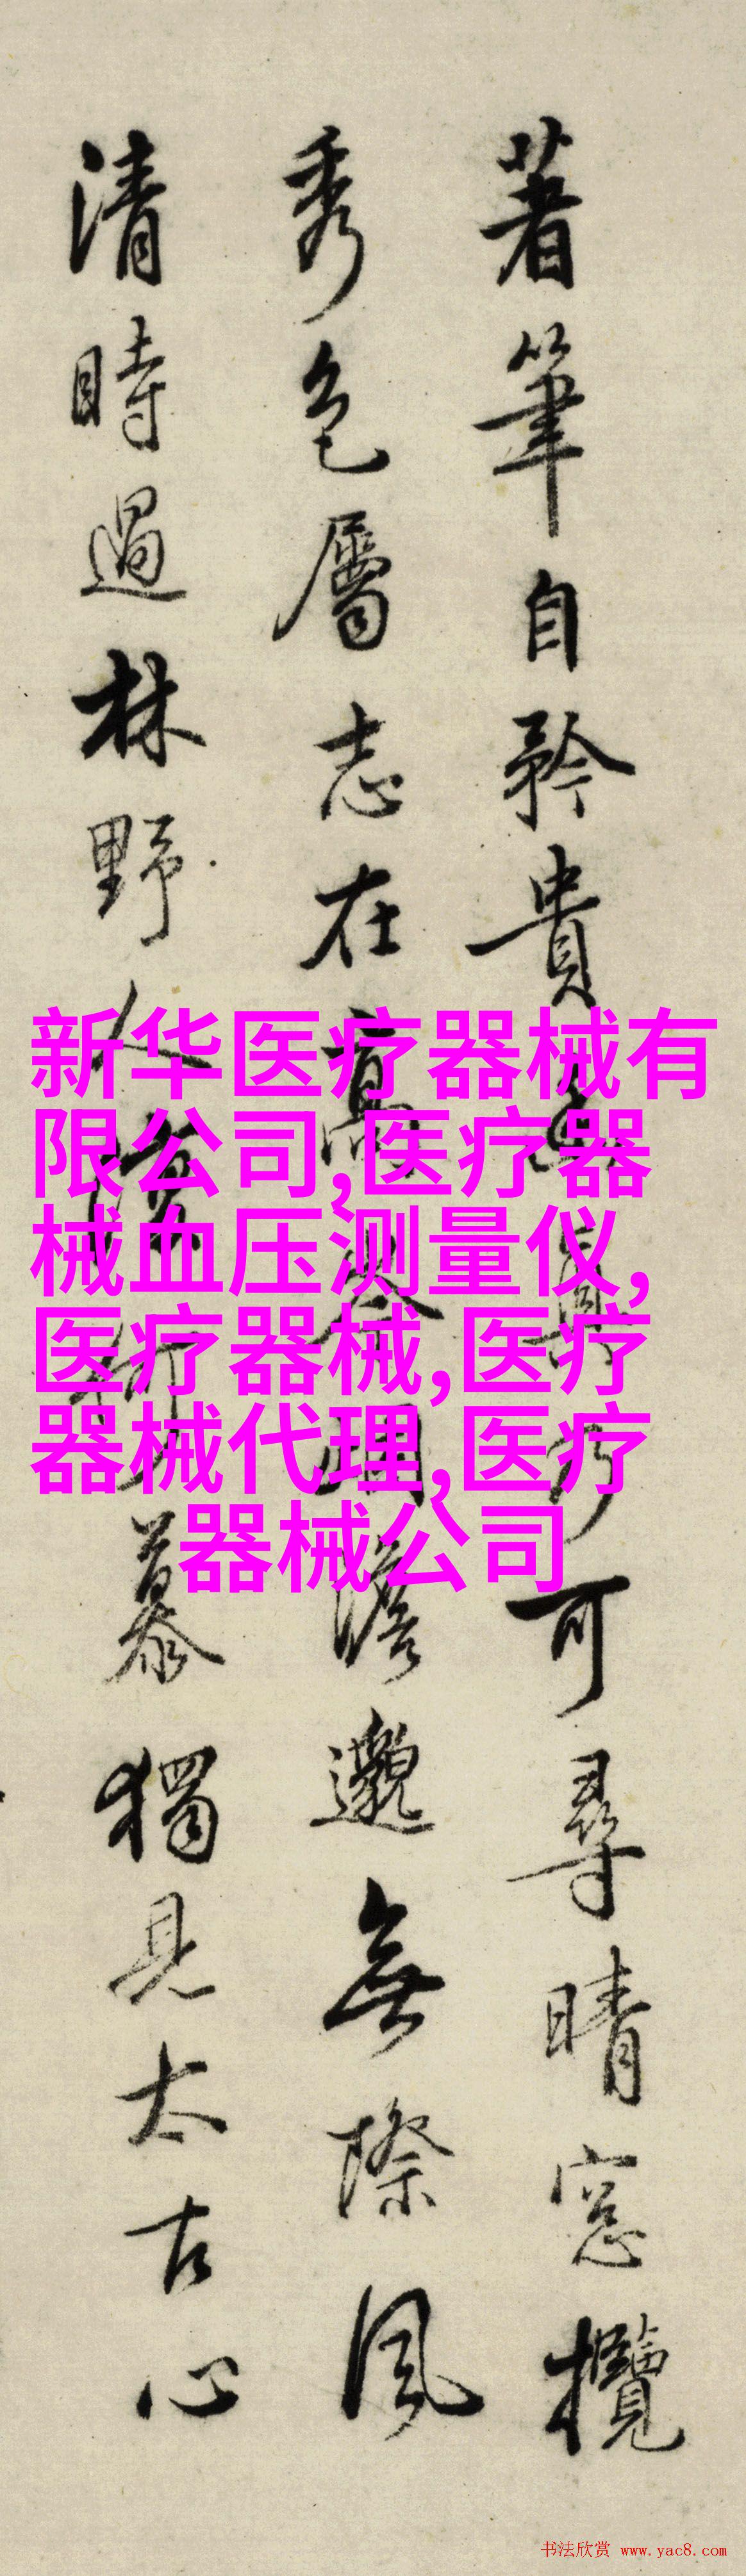 著筆自矜貴可尋晴窓攬
秀色屬志在澹邈無際風
清時過林野人慕獨見太古心
新华医疗器械有
限公司,医疗器
械血压测量仪,
医疗器械,医疗
器械代理,医疗
器械公司
书法欣赏 www.yac8.com